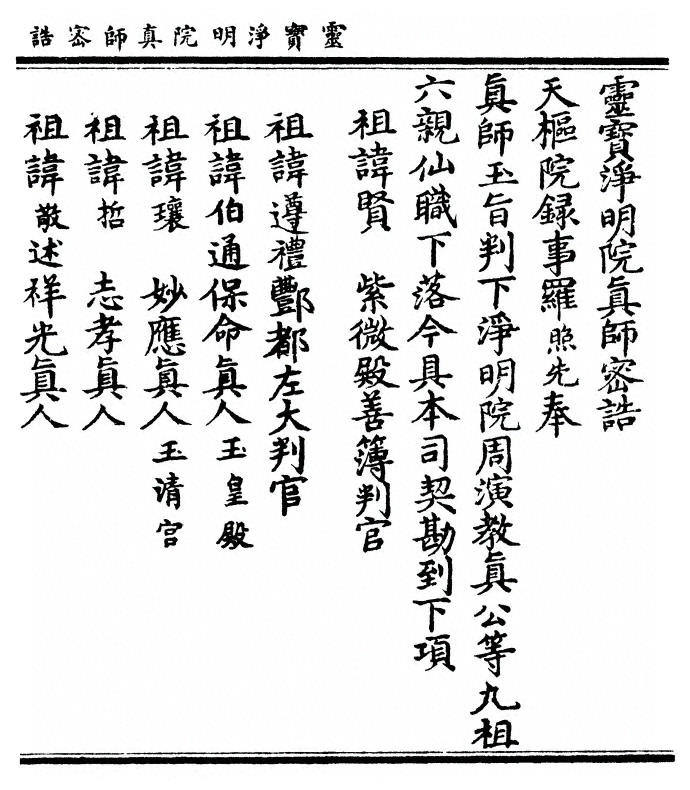 靈寶淨明院真師密誥
靈寶淨明院眞師密誥
天樞院録事羅照先奉
眞師玉旨判下淨明院周演教眞公等九祖
六親仙職下落今具本司契勘到下項
祖諱賢 紫微殿善簿判官
祖諱遵禮酆都左大判官
祖諱伯通保命眞人玉皇殿
祖諱瓌 妙應眞人玉清宮
祖諱哲 志孝眞人
祖諱敬述祥光眞人